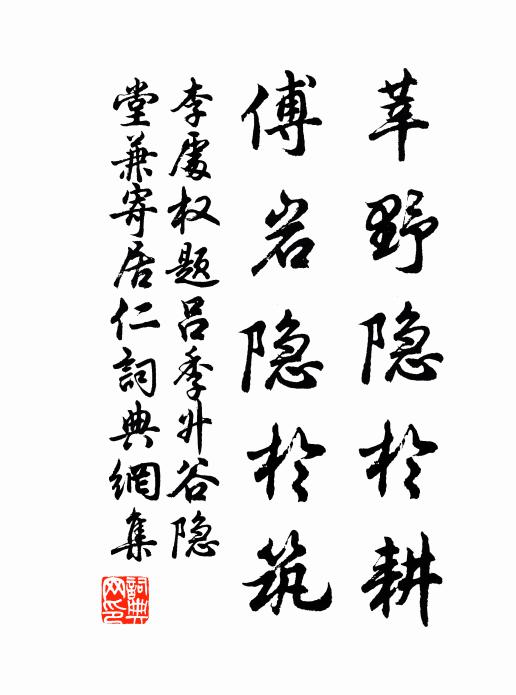 莘野隐於耕
傅岩隐於筑
李處权题吕季升谷隐
堂兼寄居仁詞典網集
詞典網印